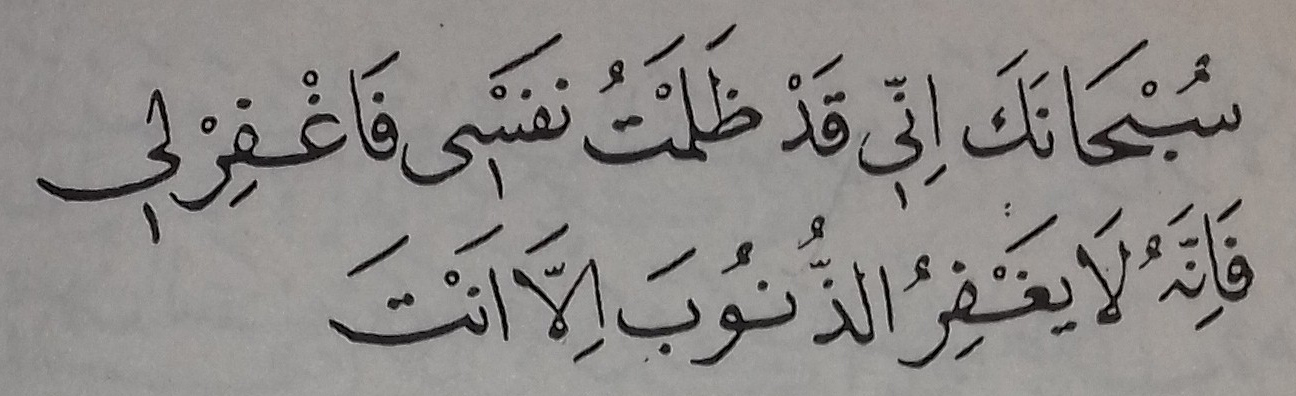 سُبْحَانَكَ اِنِّي قَدْ ظَلَمْتُ نَفْسَى فَاغْفِرْ لِي
فَاِنَّهُ لَا يَغْفِرُ الذُّنُوبَ اِلَّا اَنْتَ